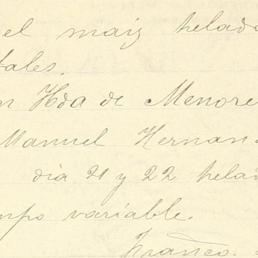 el maiz helado
tales.
n Hda de Menores
Manuel Hernan
dia 21 y 22 hela
mpo variable.
Franco.